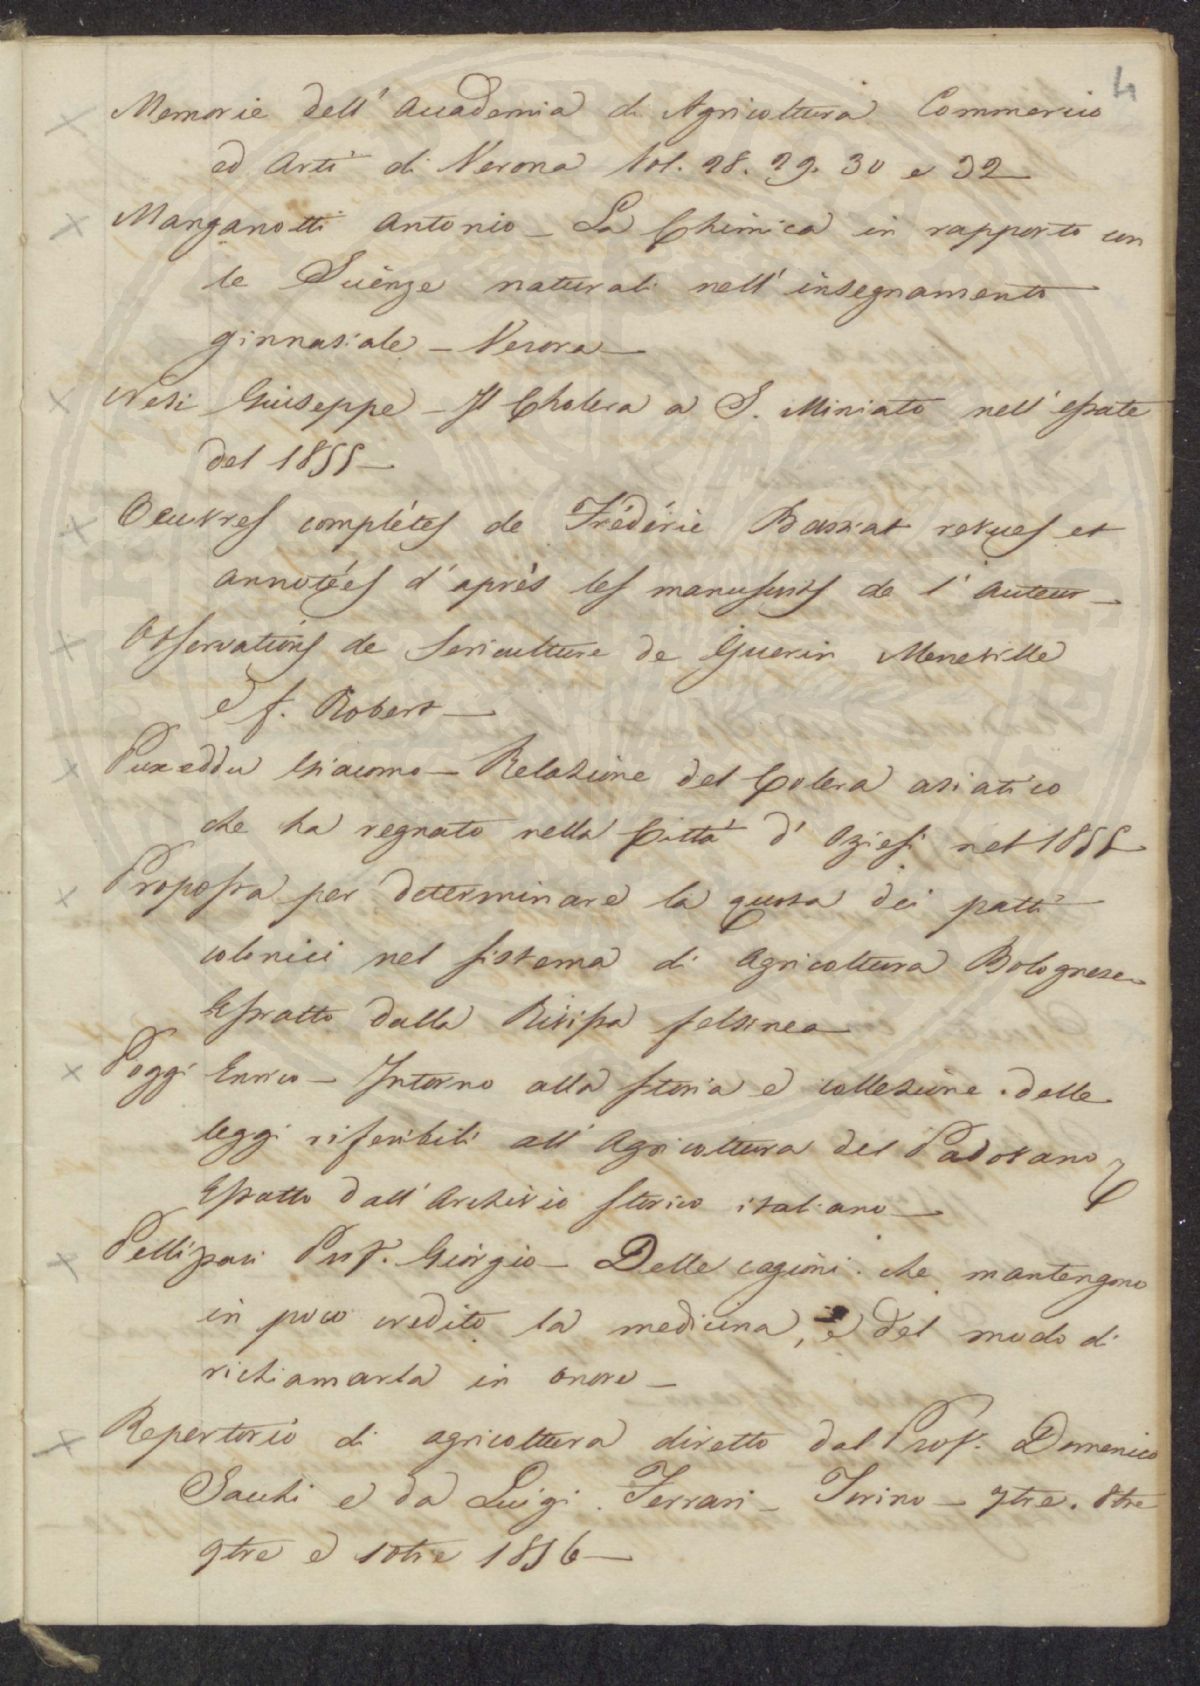 4
Memorie dell' Accademia di Agricoltura Commercio
ed Arti di Verona Vol. 28. 29. 30 e 32
Manganotti Antonio – La Chimica in rapporto con
le Scienze naturali nell' insegnamento
ginnasiale – Verona –
Nesi Giuseppe – Il Cholera a S. Miniato nell' estate
del 1855 –
Oeuvres complétes de Frédéric Bastiat revues et
annotées d' après les manuscrits de l' auteur –
Observations de Sericulture de Guerin Meneville
e f. Robert –
Puxeddu Giacomo – Relazione del Colera asiatico
che ha regnato nella Città d' Ozieri nel 1855
Proposta per determinare la quota dei patti
colonici nel sistema di Agricoltura Bolognese
Estratto dalla Rivista felsinea
Poggi Enrico – Intorno alla storia e collezione delle
leggi riferibili all' Agricoltura del Padovano
Estratto dall' Archivio storico italiano –
Pellizzari Prof. Giorgio – Delle cagioni che mantengono
in poco credito la medicina, e del modo di
richiamarla in onore –
Repertorio di agricoltura diretto dal Prof. Domenico
Sacchi e da Luigi Ferrari – Torino – 7tre. 8tre
9tre e 10tre 1856 –